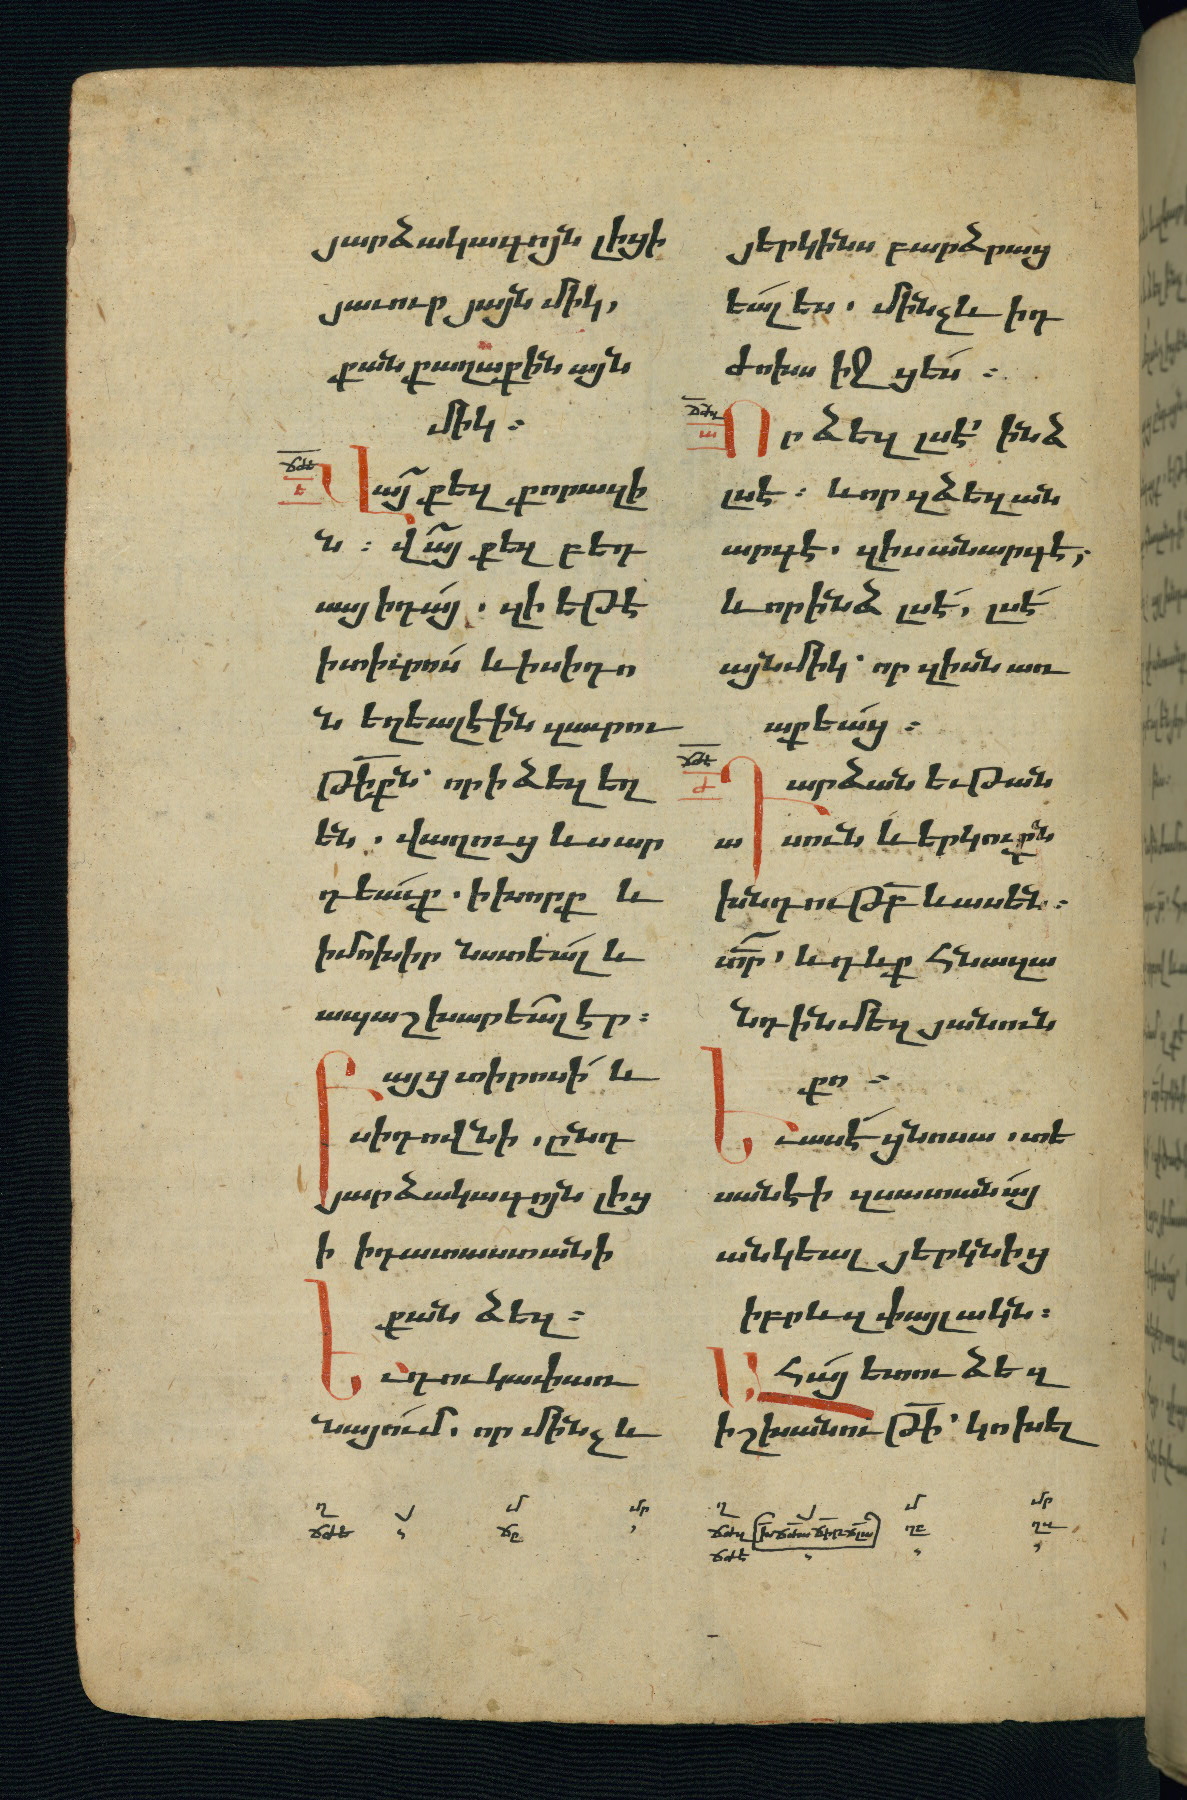 յարձակագոյն լիցի
յաւուր յայն միկ,
քան քաղաքին այն
միկ ։
ճժե
ե
Վայ քեզ քորազի
ն ։ վայ քեզ բեդ
սայիդայ . զի եթէ
ի տիւրոս և ի սիդո
ն եղեալ էին զաւրու
թիքն՝ որ ի ձեզ եղ
են . վաղուց և սար
դեամք . ի խորք և
ի մոխիր նստեալ և
ապաշխարեալ էր ։
Բայց տիրոսի և
սիդովնի . ընդ
յարձակագոյն լից
ի ի դատաստանի
քան ձեզ ։
Եւ դու կափառ
նայում . որ մինչև
յերկինս բարձրաց
եալ ես . մինչև ի դ
ժոխս իջ ցես ։
ճժզ
ա
Որ ձեզ լսէ՝ ինձ
լսէ ։ և որ զձեզ ան
արգէ . զիս անարգէ,
և որ ինձ լսէ, լսէ
այնմիկ՝ որ զիսն առ
աքեաց ։
ճժէ
ժ
Դարձան եւթան
ասուն և երկուքն
խնդութբ և ասեն ։
տր՝ և դևք հնազա
նդ ին մեզ յանուն
քո ։
Եւ ասէ ցնոսա . տե
սանէի զսատանայ
անկեալ յերկնից
իբրև զփայլակն ։
Ահայ ետու ձեզ
իշխանութի՝ կոխել